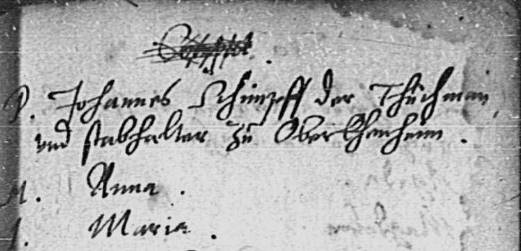 P. Johannes Schimpff der Thuchman
und stabhalter zu Oberschenheim.
M. Anna.
Maria.